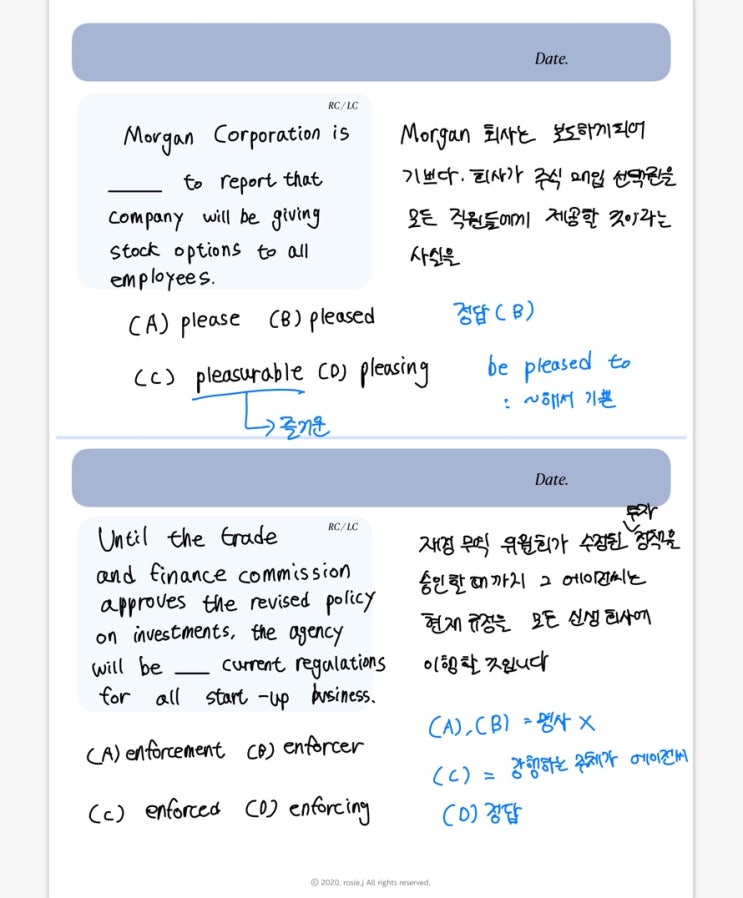 Date.
RC/LC
Morgan Corporation is
____ to report that
company will be giving
stock options to all
employees.
Morgan 회사는 보도하게되어
기쁘다. 회사가 주식 매입 선택권을
모든 직원들에게 제공할 것이라는
사실을
(A) please (B) pleased
(C) pleasurable (D) pleasing
→ 즐거운
정답 (B)
be pleased to
: ~해서 기쁜
Date.
RC/LC
Until the trade
and finance commission
approves the revised policy
on investments, the agency
will be ___ current regulations
for all start-up business.
투자
재정 무역 위원회가 수정된 정책을
승인할 때까지 그 에이전씨는
현재 규정을 모든 신생 회사에
이행할 것입니다
(A) enforcement (B) enforcer
(C) enforced (D) enforcing
(A), (B) = 명사 X
(C) = 강행하는 주체가 에이전씨
(D) 정답
© 2020. rosie.j All rights reserved.